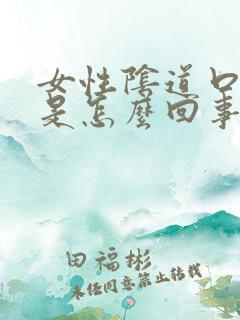 女性陰道口
是怎麼回事
田福彬
未经同意禁止转载